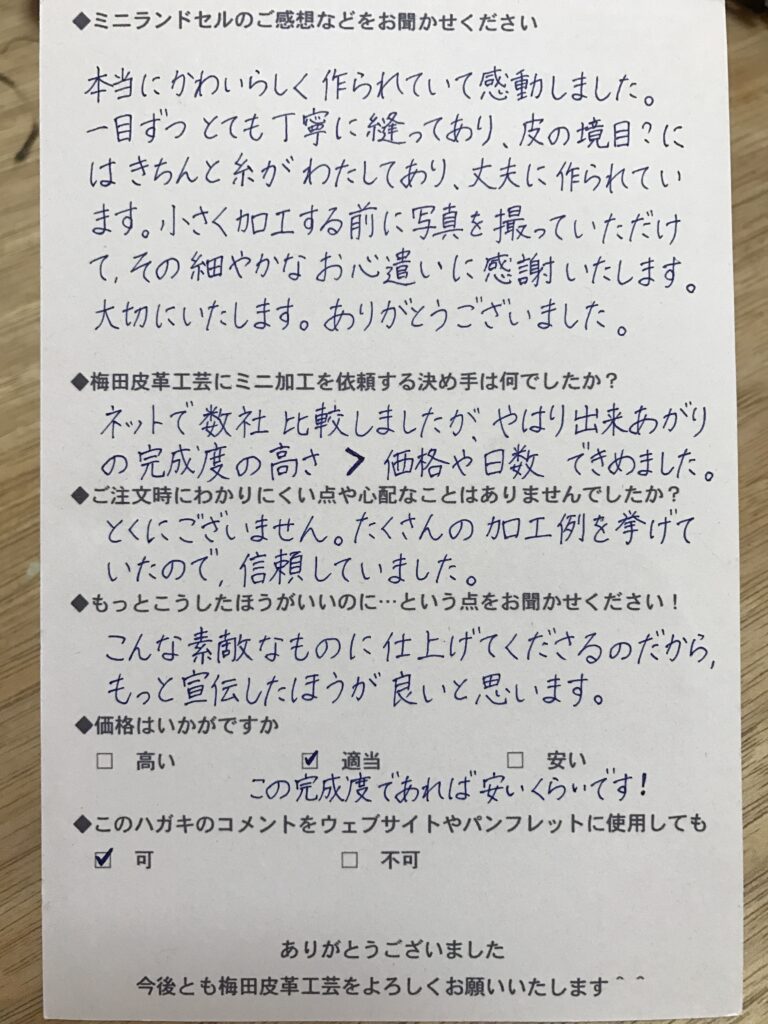 ◆ミニランドセルのご感想などをお聞かせください
本当にかわいらしく作られていて感動しました。
一目ずつとても丁寧に縫ってあり、皮の境目?に
はきちんと糸がわたしてあり、丈夫に作られてい
ます。小さく加工する前に写真を撮っていただけ
て、その細やかなお心遣いに感謝いたします。
大切にいたします。ありがとうございました。
◆梅田皮革工芸にミニ加工を依頼する決め手は何でしたか?
ネットで数社比較しましたが、やはり出来あがり
の完成度の高さ > 価格や日数 できめました。
◆ご注文時にわかりにくい点や心配なことはありませんでしたか?
とくにございません。たくさんの加工例を挙げて
いたので、信頼していました。
◆もっとこうしたほうがいいのに…という点をお聞かせください!
こんな素敵なものに仕上げてくださるのだから、
もっと宣伝したほうが良いと思います。
◆価格はいかがですか
□ 高い ☑ 適当 □ 安い
この完成度であれば安いくらいです!
◆このハガキのコメントをウェブサイトやパンフレットに使用しても
☑ 可 □ 不可
ありがとうございました
今後とも梅田皮革工芸をよろしくお願いいたします＾＾